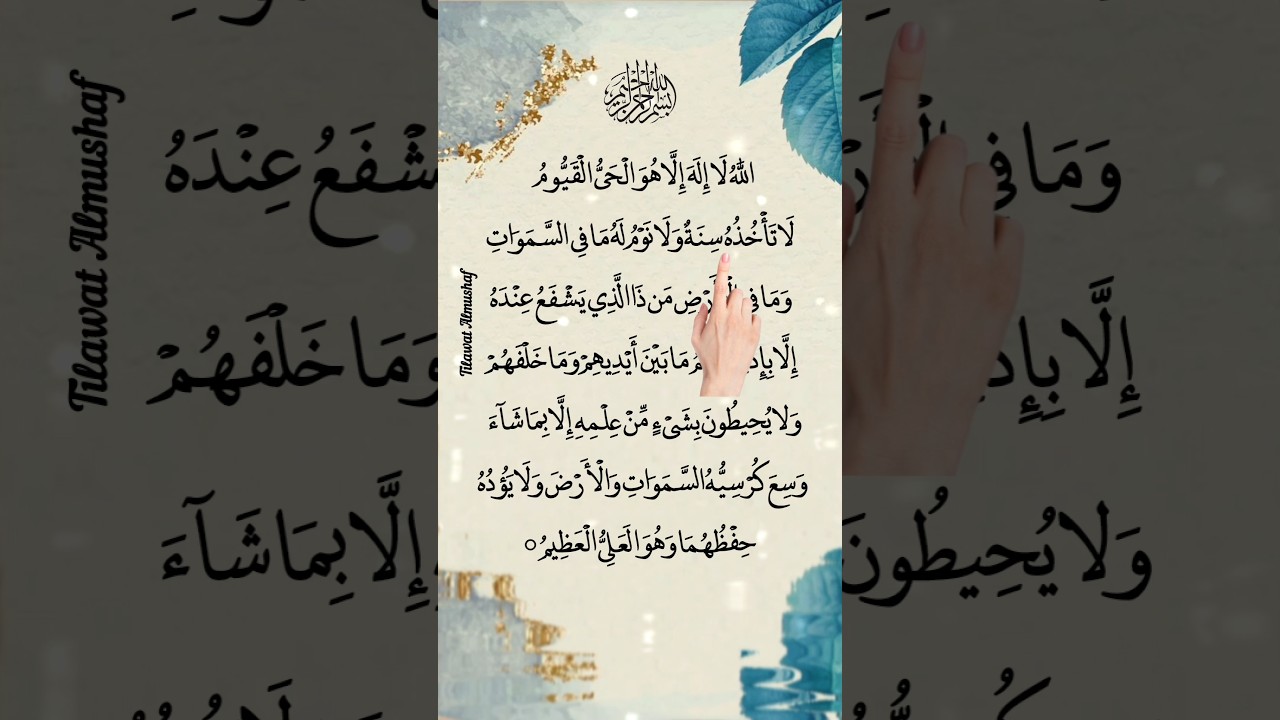 بسم الله الرحمن الرحيم
اللهُ لَا إِلَهَ إِلَّا هُوَ الْحَيُّ الْقَيُّومُ
لَا تَأْخُذُهُ سِنَةٌ وَلَا نَوْمٌ لَهُ مَا فِي السَّمَوَاتِ
وَمَا فِي الْأَرْضِ مَن ذَا الَّذِي يَشْفَعُ عِنْدَهُ
إِلَّا مَا بَيْنَ أَيْدِيهِمْ وَمَا خَلْفَهُمْ
وَلَا يُحِيطُونَ بِشَيْءٍ مِّنْ عِلْمِهِ إِلَّا بِمَا شَآءَ
وَسِعَ كُرْسِيُّهُ السَّمَوَاتِ وَالْأَرْضَ وَلَا يَؤُدُهُ
حِفْظُهُمَا وَهُوَ الْعَلِيُّ الْعَظِيمُ ○
Tilawat Almushaf